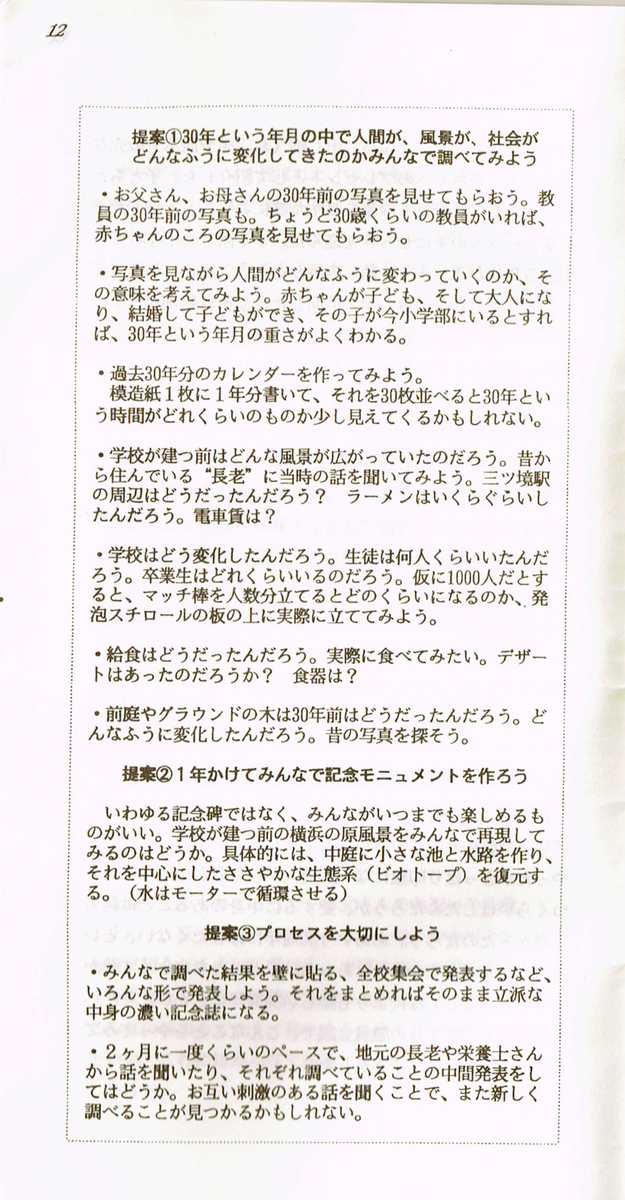 12
提案①30年という年月の中で人間が、風景が、社会が
どんなふうに変化してきたのかみんなで調べてみよう
・お父さん、お母さんの30年前の写真を見せてもらおう。教
員の30年前の写真も。ちょうど30歳くらいの教員がいれば、
赤ちゃんのころの写真を見せてもらおう。
・写真を見ながら人間がどんなふうに変わっていくのか、そ
の意味を考えてみよう。赤ちゃんが子ども、そして大人にな
り、結婚して子どもができ、その子が今小学部にいるとすれ
ば、30年という年月の重さがよくわかる。
・過去30年分のカレンダーを作ってみよう。
模造紙１枚に１年分書いて、それを30枚並べると30年とい
う時間がどれくらいのものか少し見えてくるかもしれない。
・学校が建つ前はどんな風景が広がっていたのだろう。昔か
ら住んでいる“長老”に当時の話を聞いてみよう。三ツ境駅
の周辺はどうだったんだろう？　ラーメンはいくらぐらいし
たんだろう。電車賃は？
・学校はどう変化したんだろう。生徒は何人くらいいたんだ
ろう。卒業生はどれくらいいるのだろう。仮に1000人だとす
ると、マッチ棒を人数分立てるとどのくらいになるのか、発
泡スチロールの板の上に実際に立ててみよう。
・給食はどうだったんだろう。実際に食べてみたい。デザー
トはあったのだろうか？　食器は？
・前庭やグラウンドの木は30年前はどうだったんだろう。ど
んなふうに変化したんだろう。昔の写真を探そう。
提案②１年かけてみんなで記念モニュメントを作ろう
いわゆる記念碑ではなく、みんながいつまでも楽しめるも
のがいい。学校が建つ前の横浜の原風景をみんなで再現して
みるのはどうか。具体的には、中庭に小さな池と水路を作り、
それを中心にしたささやかな生態系（ビオトープ）を復元す
る。（水はモーターで循環させる）
提案③プロセスを大切にしよう
・みんなで調べた結果を壁に貼る、全校集会で発表するなど、
いろんな形で発表しよう。それをまとめればそのまま立派な
中身の濃い記念誌になる。
・２ヶ月に一度くらいのペースで、地元の長老や栄養士さん
から話を聞いたり、それぞれ調べていることの中間発表をし
てはどうか。お互い刺激のある話を聞くことで、また新しく
調べることが見つかるかもしれない。